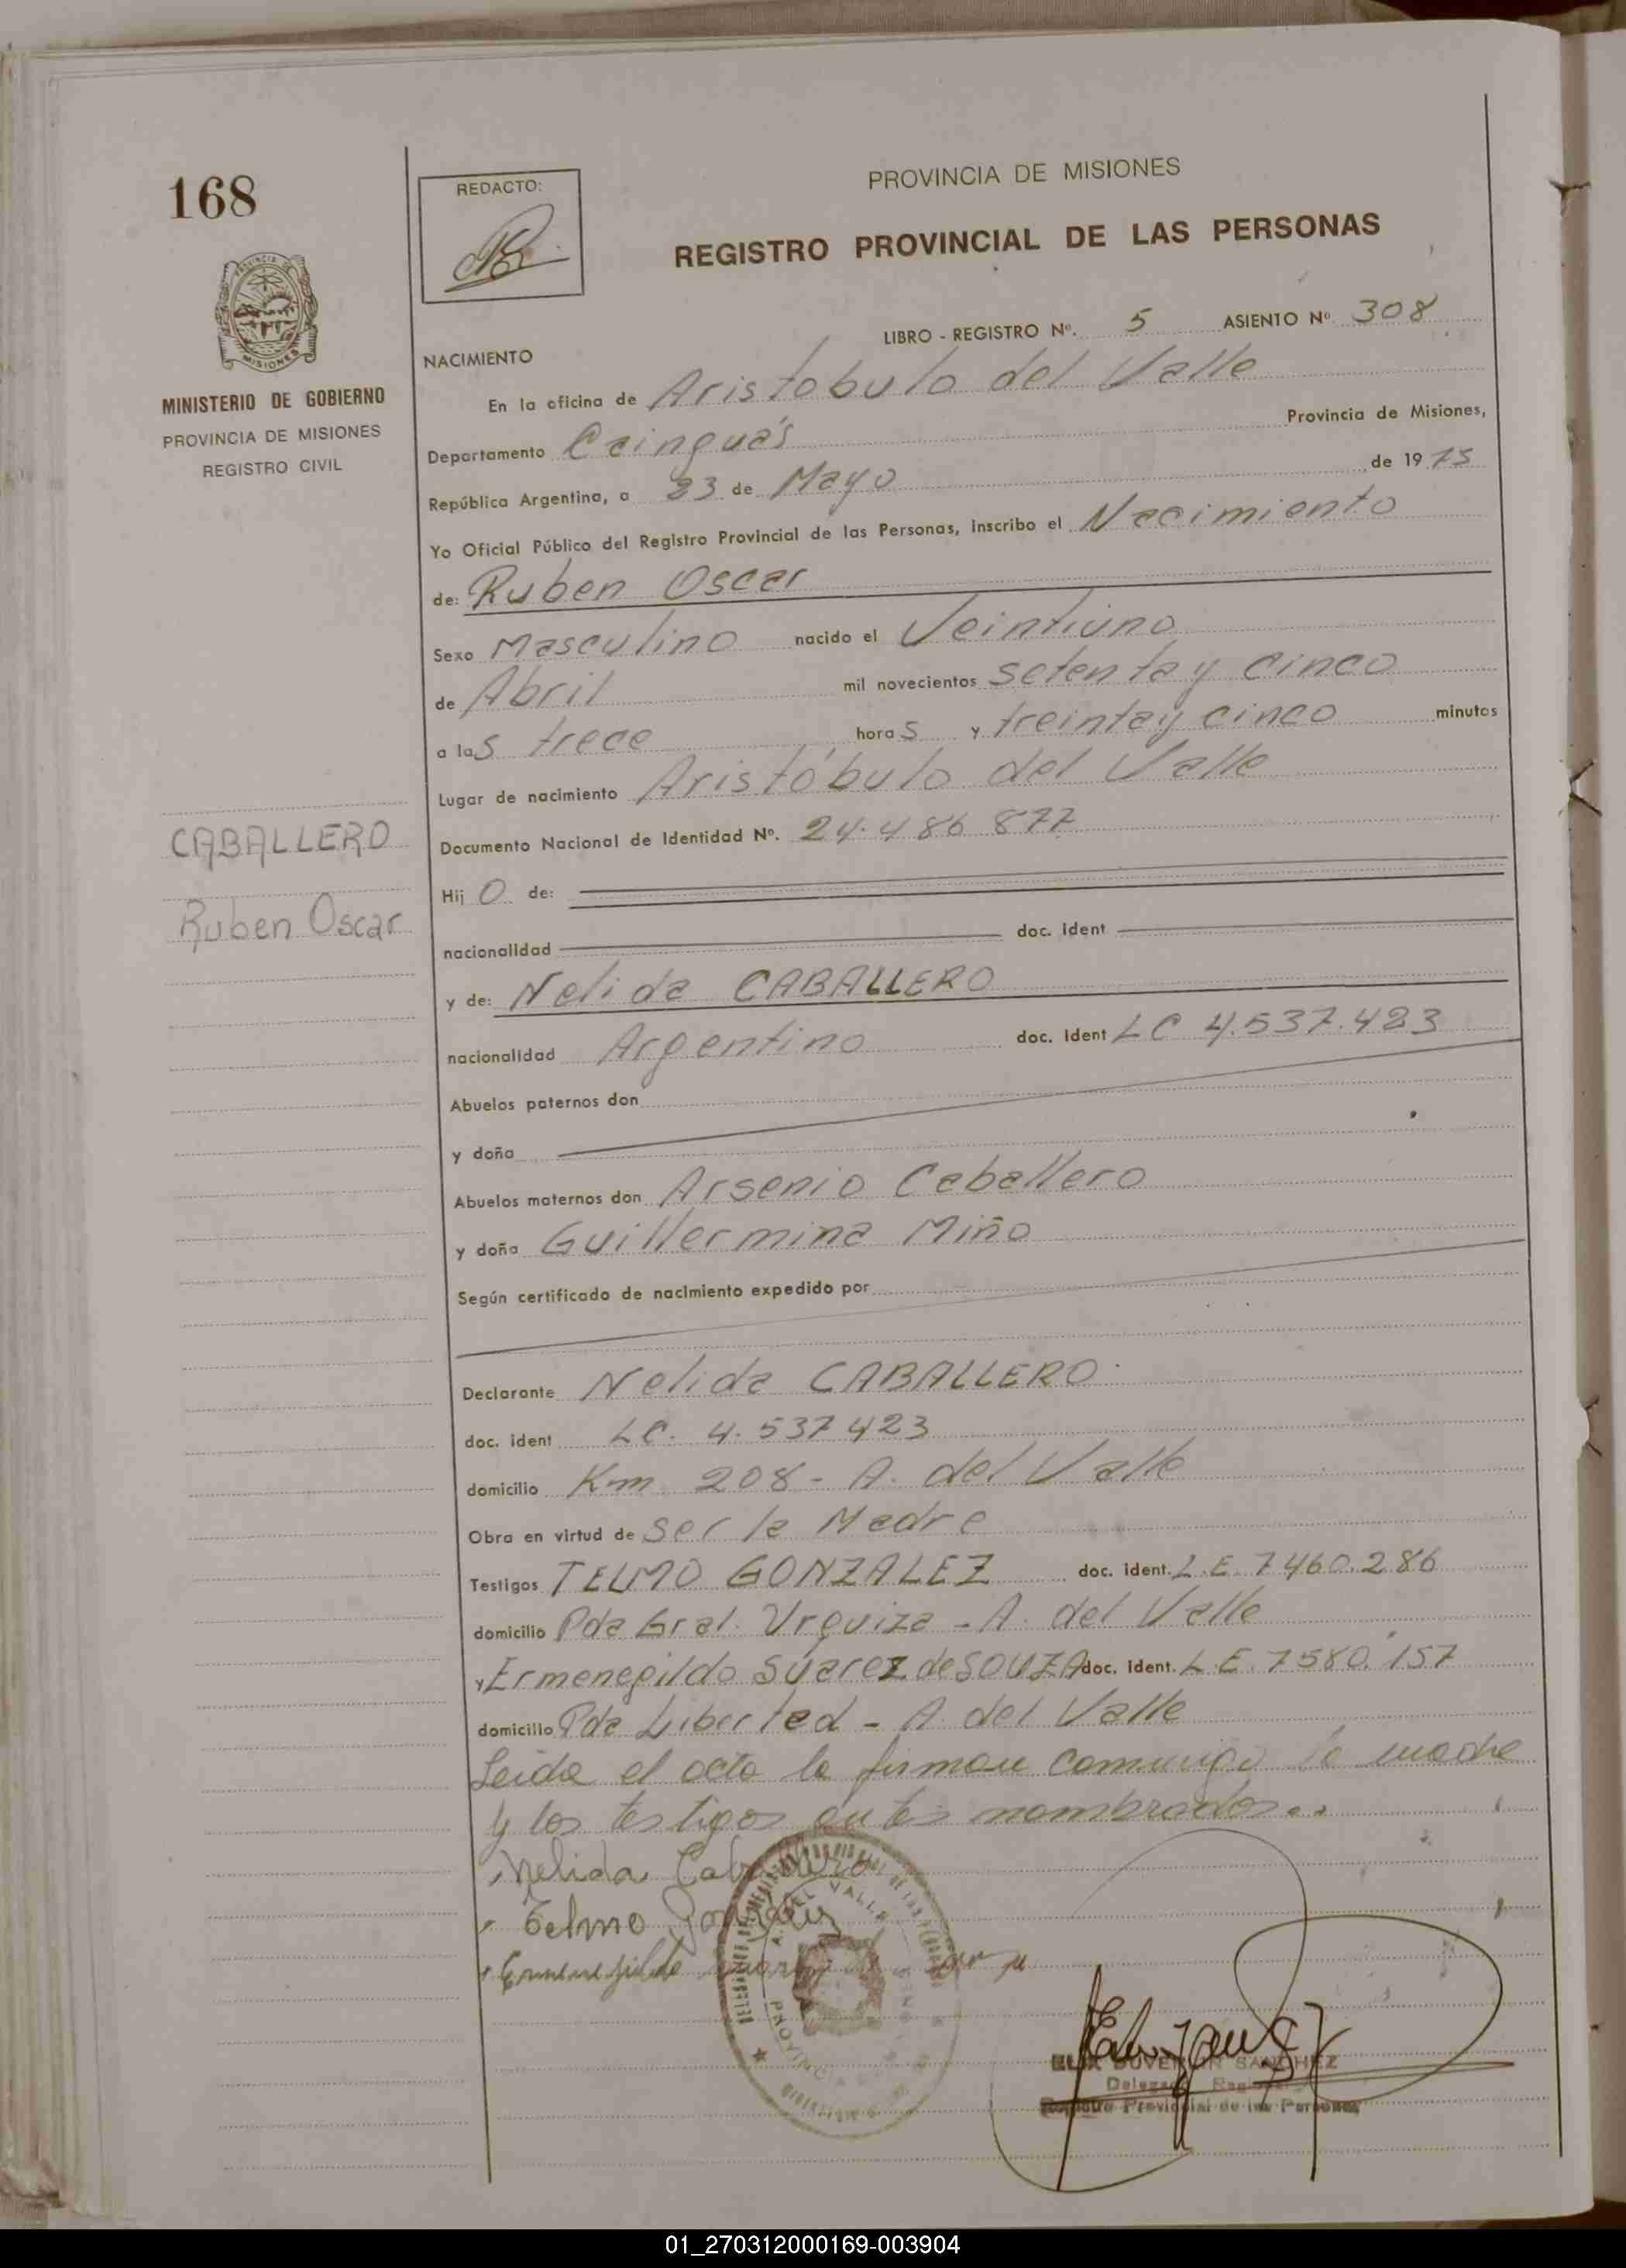 168
REDACTO:
PROVINCIA DE MISIONES
REGISTRO PROVINCIAL DE LAS PERSONAS
LIBRO - REGISTRO Nº. 5 ASIENTO Nº 308
PROVINCIA DE
MISIONES
MINISTERIO DE GOBIERNO
PROVINCIA DE MISIONES
REGISTRO CIVIL
NACIMIENTO
En la oficina de Aristobulo del Valle
Departamento Cainguás Provincia de Misiones,
República Argentina, a 23 de Mayo de 1975
Yo Oficial Público del Registro Provincial de las Personas, inscribo el Nacimiento
de: Ruben Oscar
Sexo Masculino nacido el Veintiuno
de Abril mil novecientos setenta y cinco
a las trece horas y treinta y cinco minutos
Lugar de nacimiento Aristóbulo del Valle
Documento Nacional de Identidad Nº. 24.486 877
CABALLERO
Ruben Oscar
Hijo de:
nacionalidad doc. Ident
y de: Nelida CABALLERO
nacionalidad Argentino doc. Ident LC 4.537.423
Abuelos paternos don
y doña
Abuelos maternos don Arsenio Caballero
y doña Guillermina Miño
Según certificado de nacimiento expedido por
Declarante Nelida CABALLERO
doc. ident LC. 4.537 423
domicilio Km 208 - A. del Valle
Obra en virtud de ser la Madre
Testigos TELMO GONZALEZ doc. ident. L.E. 7460.286
domicilio Pda Gral. Urquiza - A. del Valle
y Ermenegildo Súarez de SOUZA doc. ident. L.E. 7580.157
domicilio Pda Libertad - A. del Valle
Leida el acta la firman conmigo la madre
y los testigos antes nombrados..
Nelida Caballero
Telmo Gonzalez
Ermenegildo
A. DEL VALLE
PROVINCIA
SANCHEZ
Registro Provincial de las Personas
01_270312000169-003904